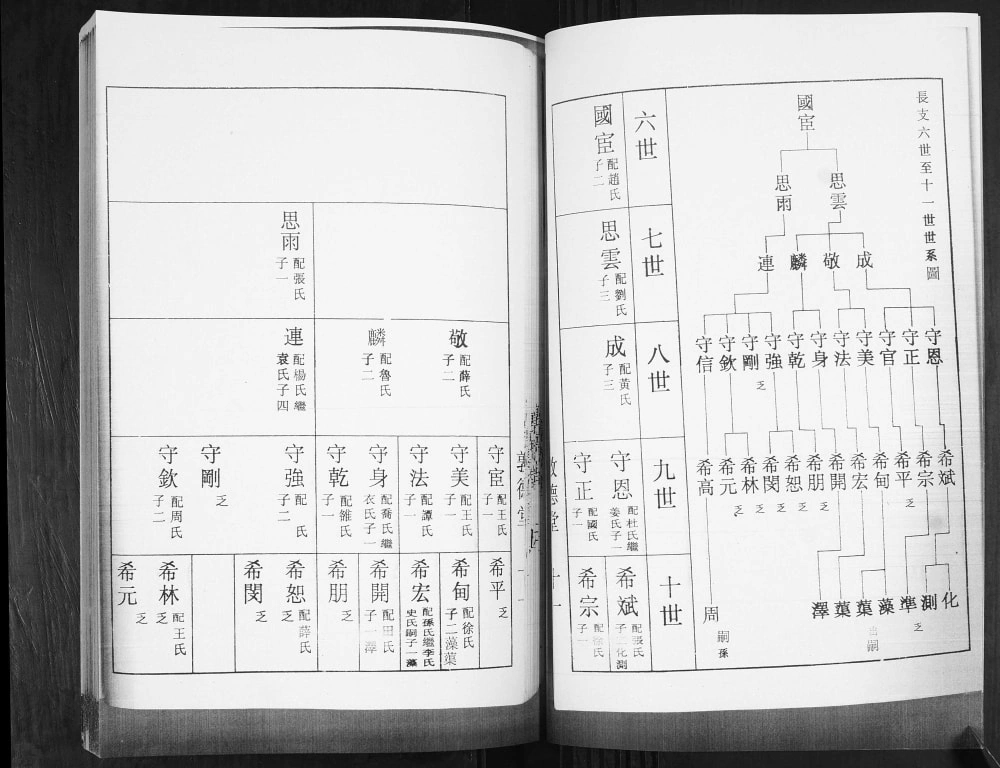 長支六世至十一世世系圖
國宦
思雲 思雨
成 敬 麟 連
守恩 守正 守官 守美 守法 守身 守乾 守強 守剛 守欽 守信
乏
希斌 希宗 希平 希甸 希宏 希開 希朋 希恕 希閔 希林 希元 希高
乏 乏 乏 乏 乏 乏
化 測 準 藻 葉 葉 澤 周
乏
嗣
嗣孫
六世
國宦 配趙氏 子二
七世
思雲 配劉氏 子三
八世
成 配黃氏 子三
九世
守恩 配杜氏繼姜氏子一
守正 配國氏 子一
十世
希斌 配張氏 子二化測
希宗 配徐氏 子一
敦德堂
十一
思雨 配張氏 子一
敬 配薛氏 子二
麟 配魯氏 子二
連 配楊氏繼袁氏子四
守宦 配王氏 子一
守美 配王氏 子一
守法 配譚氏 子一
守身 配喬氏繼衣氏子一
守乾 配雒氏 子一
守強 配 氏 子二
守剛 乏
守欽 配周氏 子二
希平 乏
希甸 配徐氏 子二藻葉
希宏 配孫氏繼李氏史氏嗣子一藻
希開 配田氏 子一澤
希朋 乏
希恕 配薛氏 乏
希閔 乏
希林 配王氏 乏
希元 乏